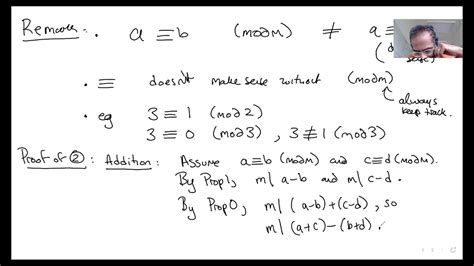 Remark: . a ≡ b (mod m) ≠ a ≡
• ≡ doesn't make sense without (mod m)
always keep track.
• eg 3 ≡ 1 (mod 2)
3 ≡ 0 (mod 3) , 3 ≢ 1 (mod 3)
Proof of ②: Addition: Assume a≡b (mod m) and c≡d (mod m).
By Prop 1, m | a-b and m | c-d .
By Prop 0, m | (a-b)+(c-d) , so
m | (a+c)-(b+d) .